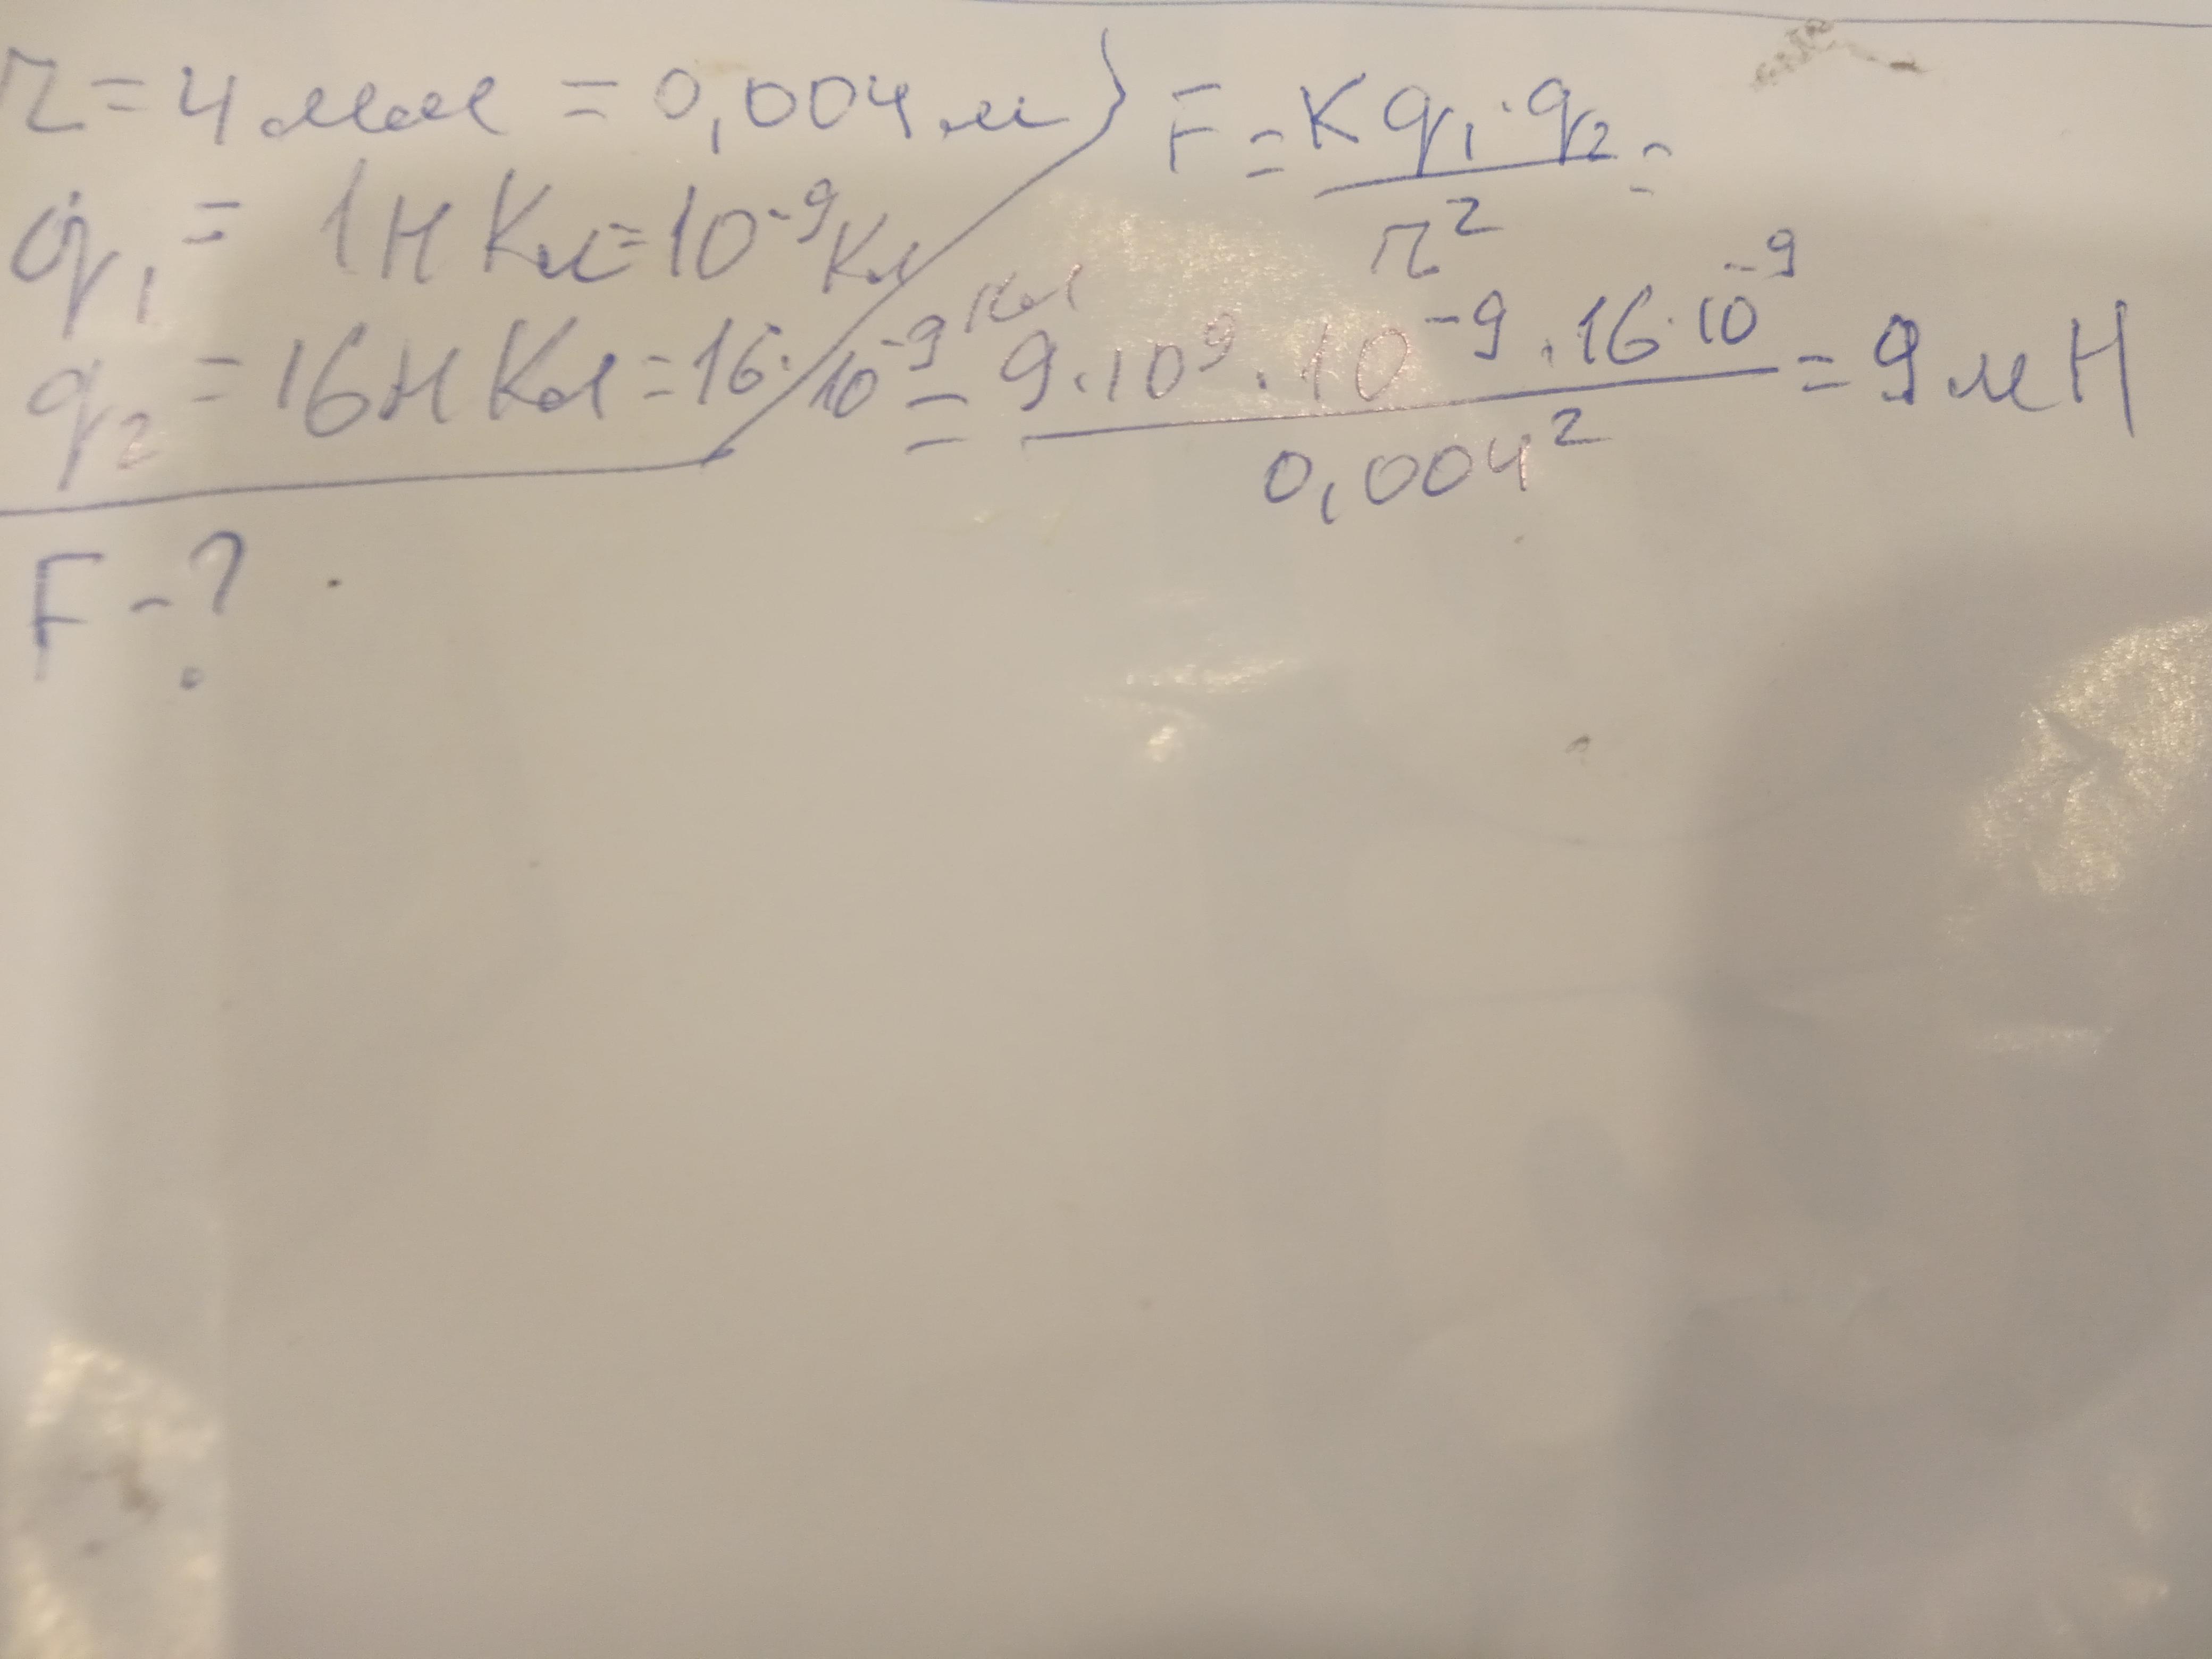 r = 4 мм = 0,004 м
q₁ = 1 н Кл = 10⁻⁹ Кл
q₂ = 16 н Кл = 16 · 10⁻⁹ Кл
F - ?
F = K q₁ · q₂ / r² =
= 9 · 10⁹ · 10⁻⁹ · 16 · 10⁻⁹ / 0,004² = 9 мН